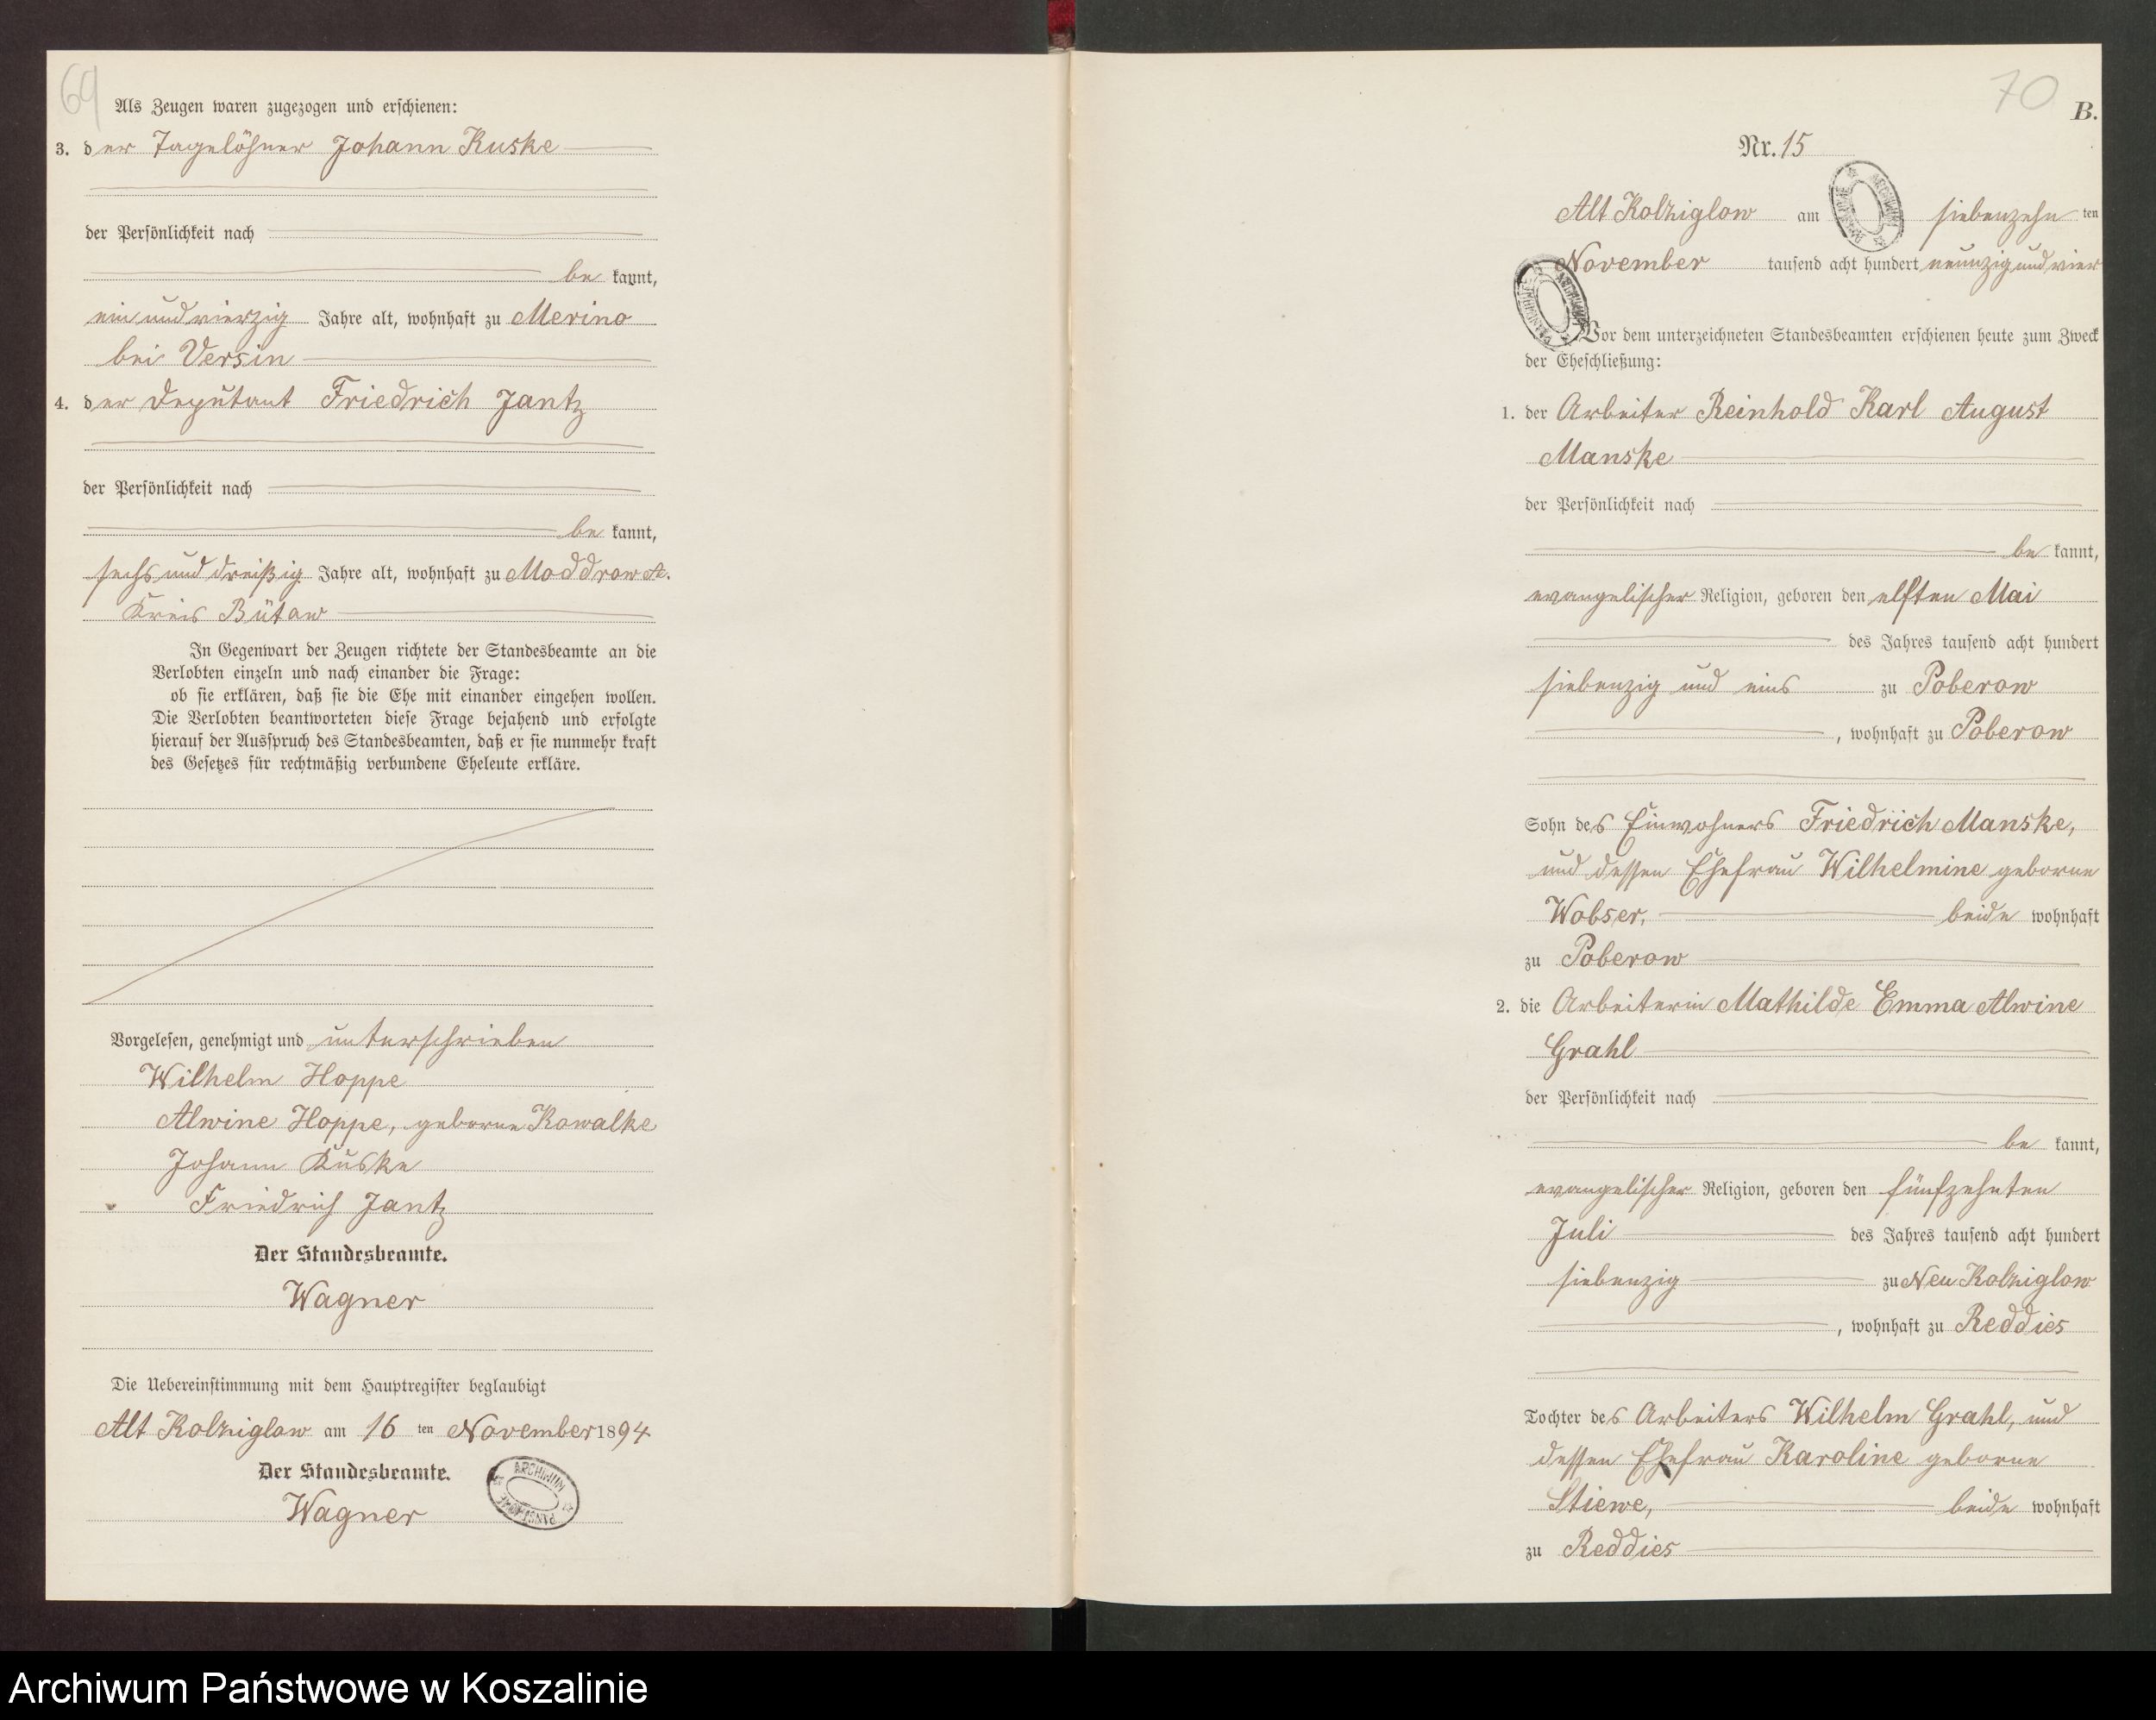 69
Als Zeugen waren zugezogen und erschienen:
3. der Tagelöhner Johann Kuske
der Persönlichkeit nach
be kannt,
ein und vierzig Jahre alt, wohnhaft zu Merino
bei Versin
4. der Deputant Friedrich Jantz
der Persönlichkeit nach
be kannt,
sechs und dreißig Jahre alt, wohnhaft zu Moddrow A.
Kreis Bütow
In Gegenwart der Zeugen richtete der Standesbeamte an die
Verlobten einzeln und nach einander die Frage:
ob sie erklären, daß sie die Ehe mit einander eingehen wollen.
Die Verlobten beantworteten diese Frage bejahend und erfolgte
hierauf der Ausspruch des Standesbeamten, daß er sie nunmehr kraft
des Gesetzes für rechtmäßig verbundene Eheleute erkläre.
Vorgelesen, genehmigt und unterschrieben
Wilhelm Hoppe
Alwine Hoppe, geborne Kowalke
Johann Kuske
Friedrich Jantz
Der Standesbeamte.
Wagner
Die Uebereinstimmung mit dem Hauptregister beglaubigt
Alt Kolziglow am 16 ten November 1894
Der Standesbeamte.
Wagner
ARCHIWUM PAŃSTWOWE
70
B.
Nr. 15
Alt Kolziglow am siebenzehn ten
November tausend acht hundert neunzig und vier
Vor dem unterzeichneten Standesbeamten erschienen heute zum Zweck
der Eheschließung:
1. der Arbeiter Reinhold Karl August
Manske
der Persönlichkeit nach
be kannt,
evangelischer Religion, geboren den elften Mai
des Jahres tausend acht hundert
siebenzig und eins zu Poberow
, wohnhaft zu Poberow
Sohn des Einwohners Friedrich Manske,
und dessen Ehefrau Wilhelmine geborne
Wobser, beide wohnhaft
zu Poberow
2. die Arbeiterin Mathilde Emma Alwine
Grahl
der Persönlichkeit nach
be kannt,
evangelischer Religion, geboren den fünfzehnten
Juli des Jahres tausend acht hundert
siebenzig zu Neu Kolziglow
, wohnhaft zu Reddies
Tochter des Arbeiters Wilhelm Grahl, und
dessen Ehefrau Karoline geborne
Stiewe, beide wohnhaft
zu Reddies
Archiwum Państwowe w Koszalinie